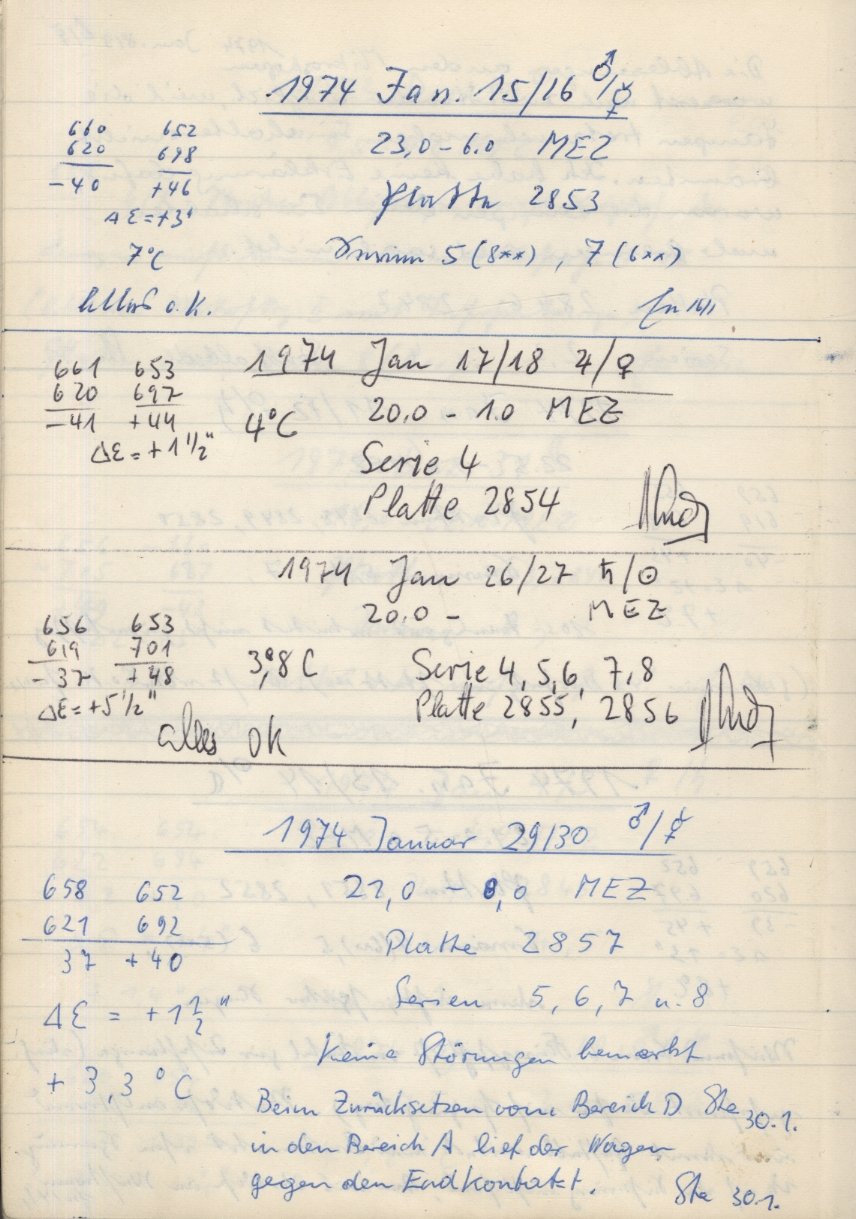 1974 Jan. 15/16 ♂/☿
660 652
620 698
-40 +46
23,0 - 6.0 MEZ
Platte 2853
Δε = +3"
7°C
Serien 5 (8**), 7 (6**)
alles o.K.
1974 Jan 17/18 ♃/♀
661 653
620 697
-41 +44
20.0 - 1.0 MEZ
4°C
Δε = +1 1/2"
Serie 4
Platte 2854
1974 Jan 26/27 ♄/☉
20.0 - MEZ
656 653
619 701
-37 +48
3,°8 C
Serie 4, 5, 6, 7, 8
Δε = +5 1/2"
Platte 2855, 2856
alles ok
1974 Januar 29/30 ♂/☿
658 652
621 692
37 +40
21,0 - 8,0 MEZ
Platte 2857
Serien 5, 6, 7 u. 8
Δε = +1 1/2"
Keine Störungen bemerkt
+ 3,3 °C
Ste 30.1.
Beim Zurücksetzen vom Bereich D
in den Bereich A lief der Wagen
gegen den Endkontakt.
Ste 30.1.